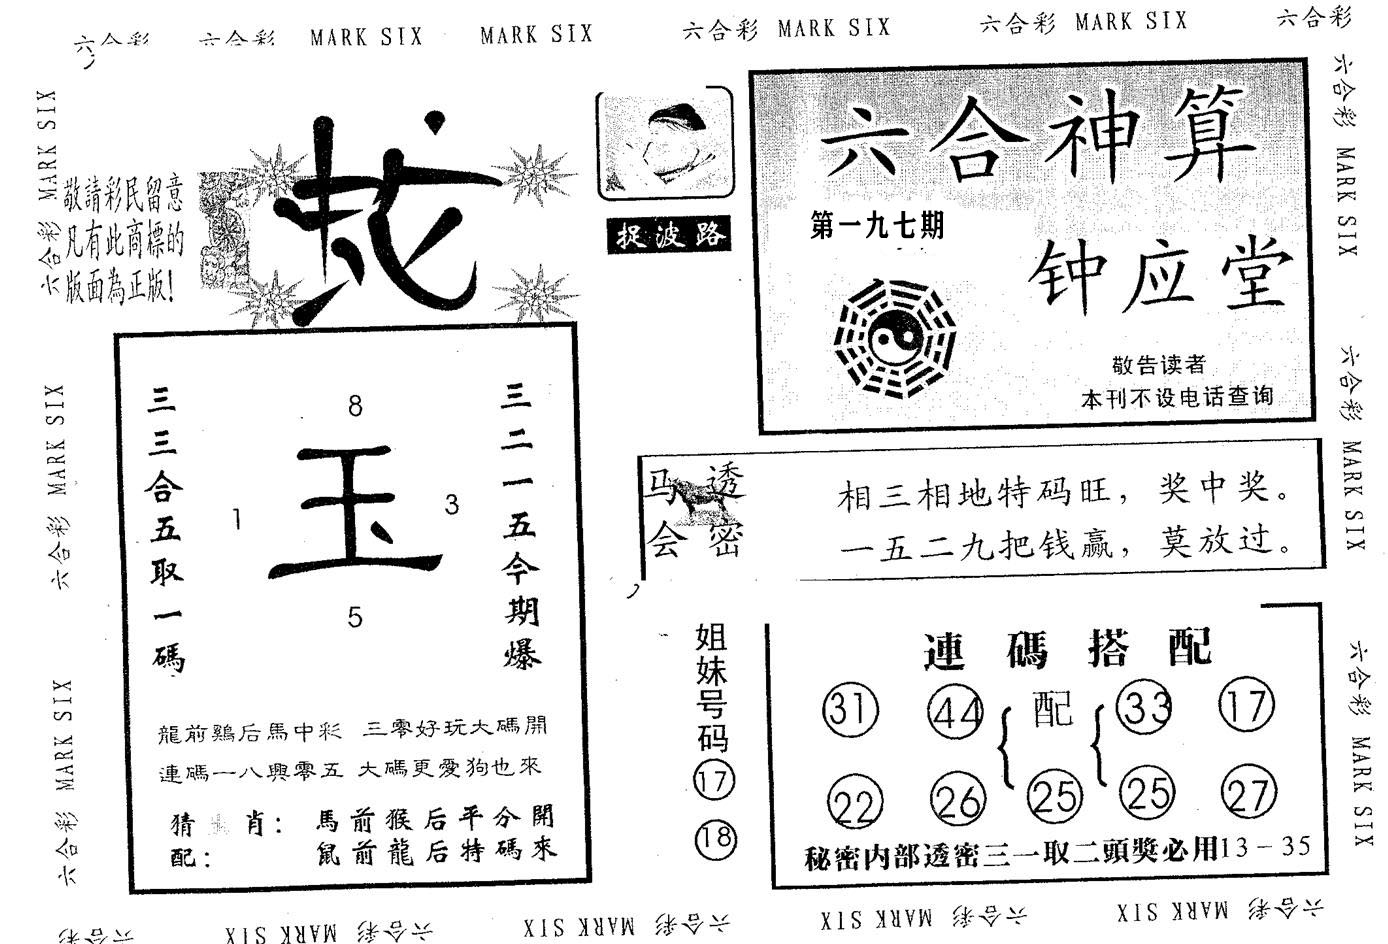 六合彩 六合彩 MARK SIX MARK SIX 六合彩 MARK SIX 六合彩 MARK SIX 六合彩
六合彩 MARK SIX
六合彩 MARK SIX
六合彩 MARK SIX
敬請彩民留意
凡有此商標的
版面為正版!
捉波路
六合神算
第一九七期
钟应堂
敬告读者
本刊不设电话查询
三三合五取一碼
8
1
玉
3
5
三二一五今期爆
龍前鷄后馬中彩 三零好玩大碼開
連碼一八興零五 大碼更愛狗也來
猜 肖: 馬前猴后平分開
配: 鼠前龍后特碼來
马会
透密
相三相地特码旺，奖中奖。
一五二九把钱赢，莫放过。
姐妹号码
17
18
連碼搭配
31 44 配 33 17
22 26 25 25 27
秘密内部透密三一取二頭獎必用13-35
六合彩 MARK SIX
六合彩 MARK SIX
六合彩 MARK SIX
六合彩 MARK SIX 六合彩 MARK SIX 六合彩 MARK SIX 六合彩 MARK SIX 六合彩